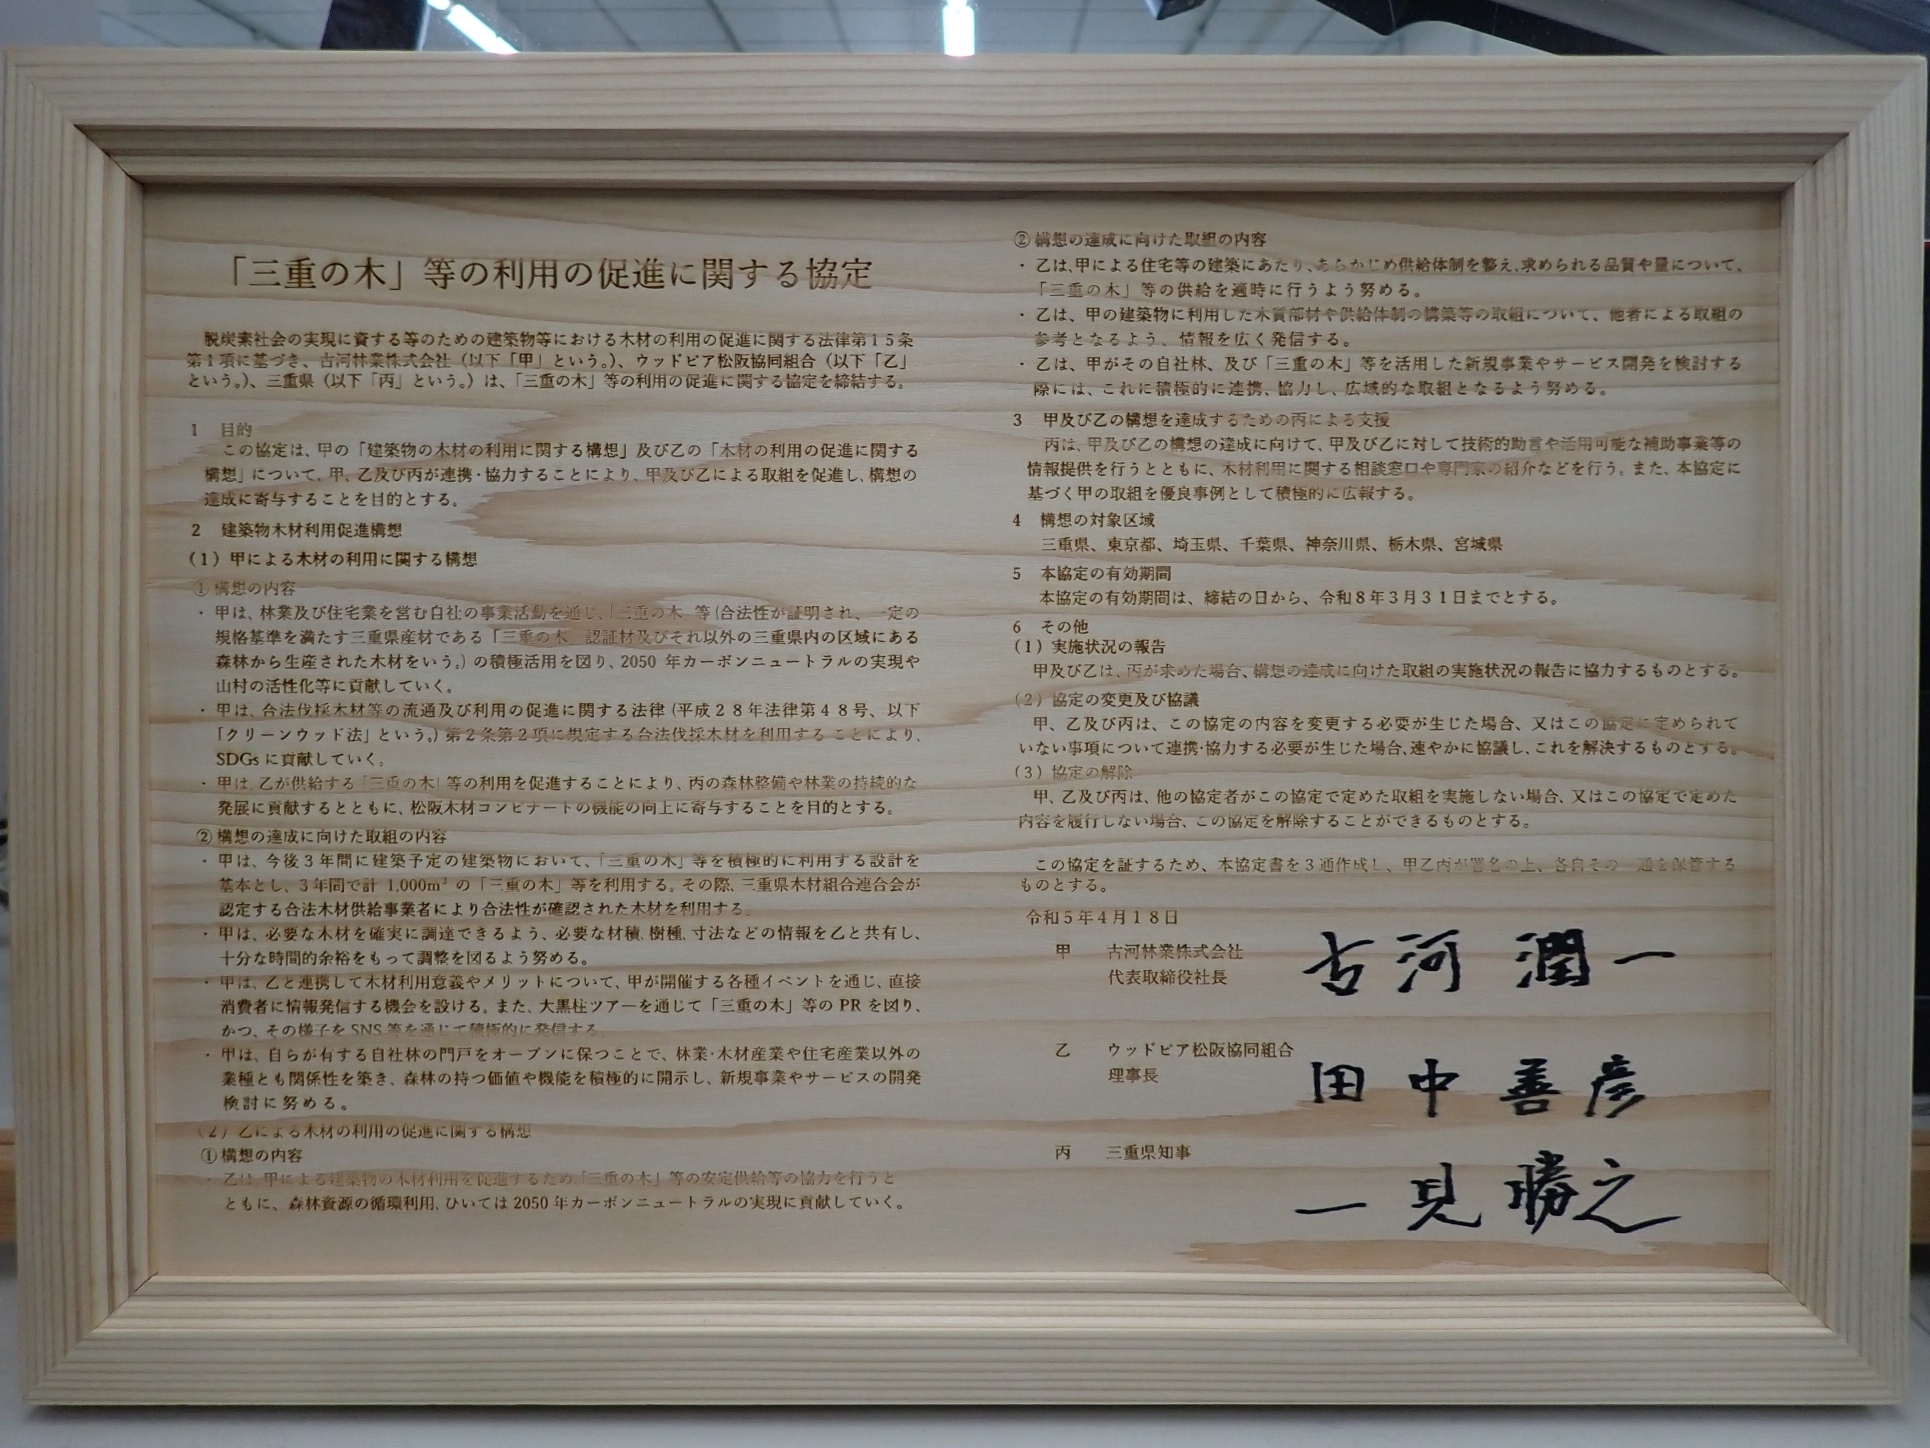 「三重の木」等の利用の促進に関する協定
脱炭素社会の実現に資する等のための建築物等における木材の利用の促進に関する法律第15条
第1項に基づき、古河林業株式会社（以下「甲」という。）、ウッドピア松阪協同組合（以下「乙」
という。）、三重県（以下「丙」という。）は、「三重の木」等の利用の促進に関する協定を締結する。
1　目的
この協定は、甲の「建築物の木材の利用に関する構想」及び乙の「木材の利用の促進に関する
構想」について、甲、乙及び丙が連携・協力することにより、甲及び乙による取組を促進し、構想の
達成に寄与することを目的とする。
2　建築物木材利用促進構想
（1）甲による木材の利用に関する構想
①構想の内容
・甲は、林業及び住宅業を営む自社の事業活動を通じ、「三重の木」等（合法性が証明され、一定の
規格基準を満たす三重県産材である「三重の木」認証材及びそれ以外の三重県内の区域にある
森林から生産された木材をいう。）の積極活用を図り、2050 年カーボンニュートラルの実現や
山村の活性化等に貢献していく。
・甲は、合法伐採木材等の流通及び利用の促進に関する法律（平成28年法律第48号、以下
「クリーンウッド法」という。）第2条第2項に規定する合法伐採木材を利用することにより、
SDGs に貢献していく。
・甲は、乙が供給する「三重の木」等の利用を促進することにより、丙の森林整備や林業の持続的な
発展に貢献するとともに、松阪木材コンビナートの機能の向上に寄与することを目的とする。
②構想の達成に向けた取組の内容
・甲は、今後3年間に建築予定の建築物において、「三重の木」等を積極的に利用する設計を
基本とし、3年間で計 1,000m³ の「三重の木」等を利用する。その際、三重県木材組合連合会が
認定する合法木材供給事業者により合法性が確認された木材を利用する。
・甲は、必要な木材を確実に調達できるよう、必要な材積、樹種、寸法などの情報を乙と共有し、
十分な時間的余裕をもって調整を図るよう努める。
・甲は、乙と連携して木材利用意義やメリットについて、甲が開催する各種イベントを通じ、直接
消費者に情報発信する機会を設ける。また、大黒柱ツアーを通じて「三重の木」等の PR を図り、
かつ、その様子を SNS 等を通じて積極的に発信する。
・甲は、自らが有する自社林の門戸をオープンに保つことで、林業・木材産業や住宅産業以外の
業種とも関係性を築き、森林の持つ価値や機能を積極的に開示し、新規事業やサービスの開発
検討に努める。
（2）乙による木材の利用の促進に関する構想
①構想の内容
・乙は、甲による建築物の木材利用を促進するため、「三重の木」等の安定供給等の協力を行うと
ともに、森林資源の循環利用、ひいては 2050 年カーボンニュートラルの実現に貢献していく。
②構想の達成に向けた取組の内容
・乙は、甲による住宅等の建築にあたり、あらかじめ供給体制を整え、求められる品質や量について、
「三重の木」等の供給を適時に行うよう努める。
・乙は、甲の建築物に利用した木質部材や供給体制の構築等の取組について、他者による取組の
参考となるよう、情報を広く発信する。
・乙は、甲がその自社林、及び「三重の木」等を活用した新規事業やサービス開発を検討する
際には、これに積極的に連携、協力し、広域的な取組となるよう努める。
3　甲及び乙の構想を達成するための丙による支援
丙は、甲及び乙の構想の達成に向けて、甲及び乙に対して技術的助言や活用可能な補助事業等の
情報提供を行うとともに、木材利用に関する相談窓口や専門家の紹介などを行う。また、本協定に
基づく甲の取組を優良事例として積極的に広報する。
4　構想の対象区域
三重県、東京都、埼玉県、千葉県、神奈川県、栃木県、宮城県
5　本協定の有効期間
本協定の有効期間は、締結の日から、令和8年3月31日までとする。
6　その他
（1）実施状況の報告
甲及び乙は、丙が求めた場合、構想の達成に向けた取組の実施状況の報告に協力するものとする。
（2）協定の変更及び協議
甲、乙及び丙は、この協定の内容を変更する必要が生じた場合、又はこの協定に定められて
いない事項について連携・協力する必要が生じた場合、速やかに協議し、これを解決するものとする。
（3）協定の解除
甲、乙及び丙は、他の協定者がこの協定で定めた取組を実施しない場合、又はこの協定で定めた
内容を履行しない場合、この協定を解除することができるものとする。
この協定を証するため、本協定書を3通作成し、甲乙丙が署名の上、各自その一通を保管する
ものとする。
令和5年4月18日
甲　古河林業株式会社
代表取締役社長　古河 潤一
乙　ウッドピア松阪協同組合
理事長　田中善彦
丙　三重県知事
一見勝之